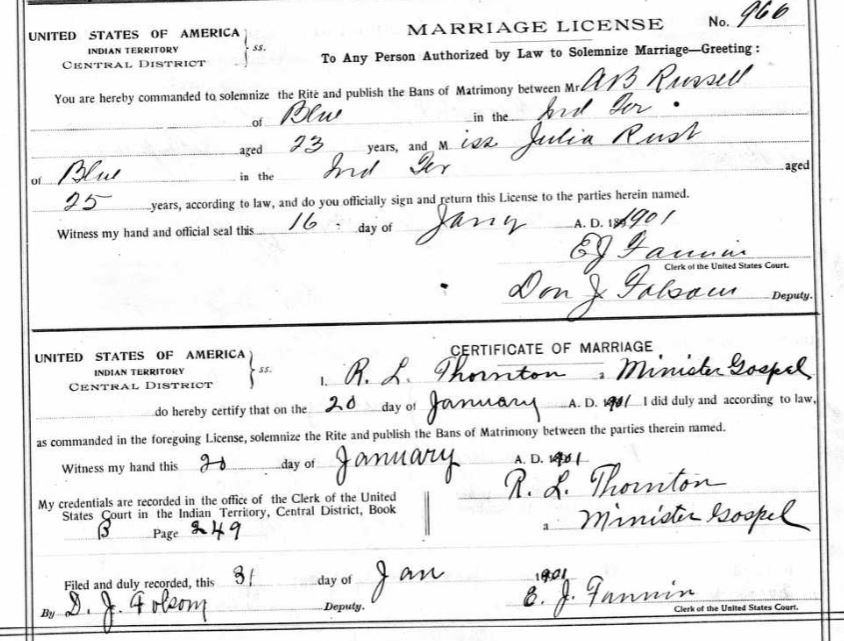 MARRIAGE LICENSE No. 966
UNITED STATES OF AMERICA
INDIAN TERRITORY ss.
CENTRAL DISTRICT
To Any Person Authorized by Law to Solemnize Marriage—Greeting:
You are hereby commanded to solemnize the Rite and publish the Bans of Matrimony between Mr AB Russell
of Blue in the Ind Ter.
aged 23 years, and Miss Julia Rust
of Blue in the Ind Ter aged
25 years, according to law, and do you officially sign and return this License to the parties herein named.
Witness my hand and official seal this 16 day of Jany A. D. 1901
EJ Fannin
Clerk of the United States Court.
Don J Folsom Deputy.
CERTIFICATE OF MARRIAGE
UNITED STATES OF AMERICA
INDIAN TERRITORY ss.
CENTRAL DISTRICT
I, R. L. Thornton a Minister Gospel
do hereby certify that on the 20 day of January A. D. 1901 I did duly and according to law,
as commanded in the foregoing License, solemnize the Rite and publish the Bans of Matrimony between the parties therein named.
Witness my hand this 20 day of January A. D. 1901
R. L. Thornton
My credentials are recorded in the office of the Clerk of the United
States Court in the Indian Territory, Central District, Book
B Page 249
a Minister Gospel
Filed and duly recorded, this 31 day of Jan 1901
By D. J. Folsom Deputy. E. J. Fannin
Clerk of the United States Court.